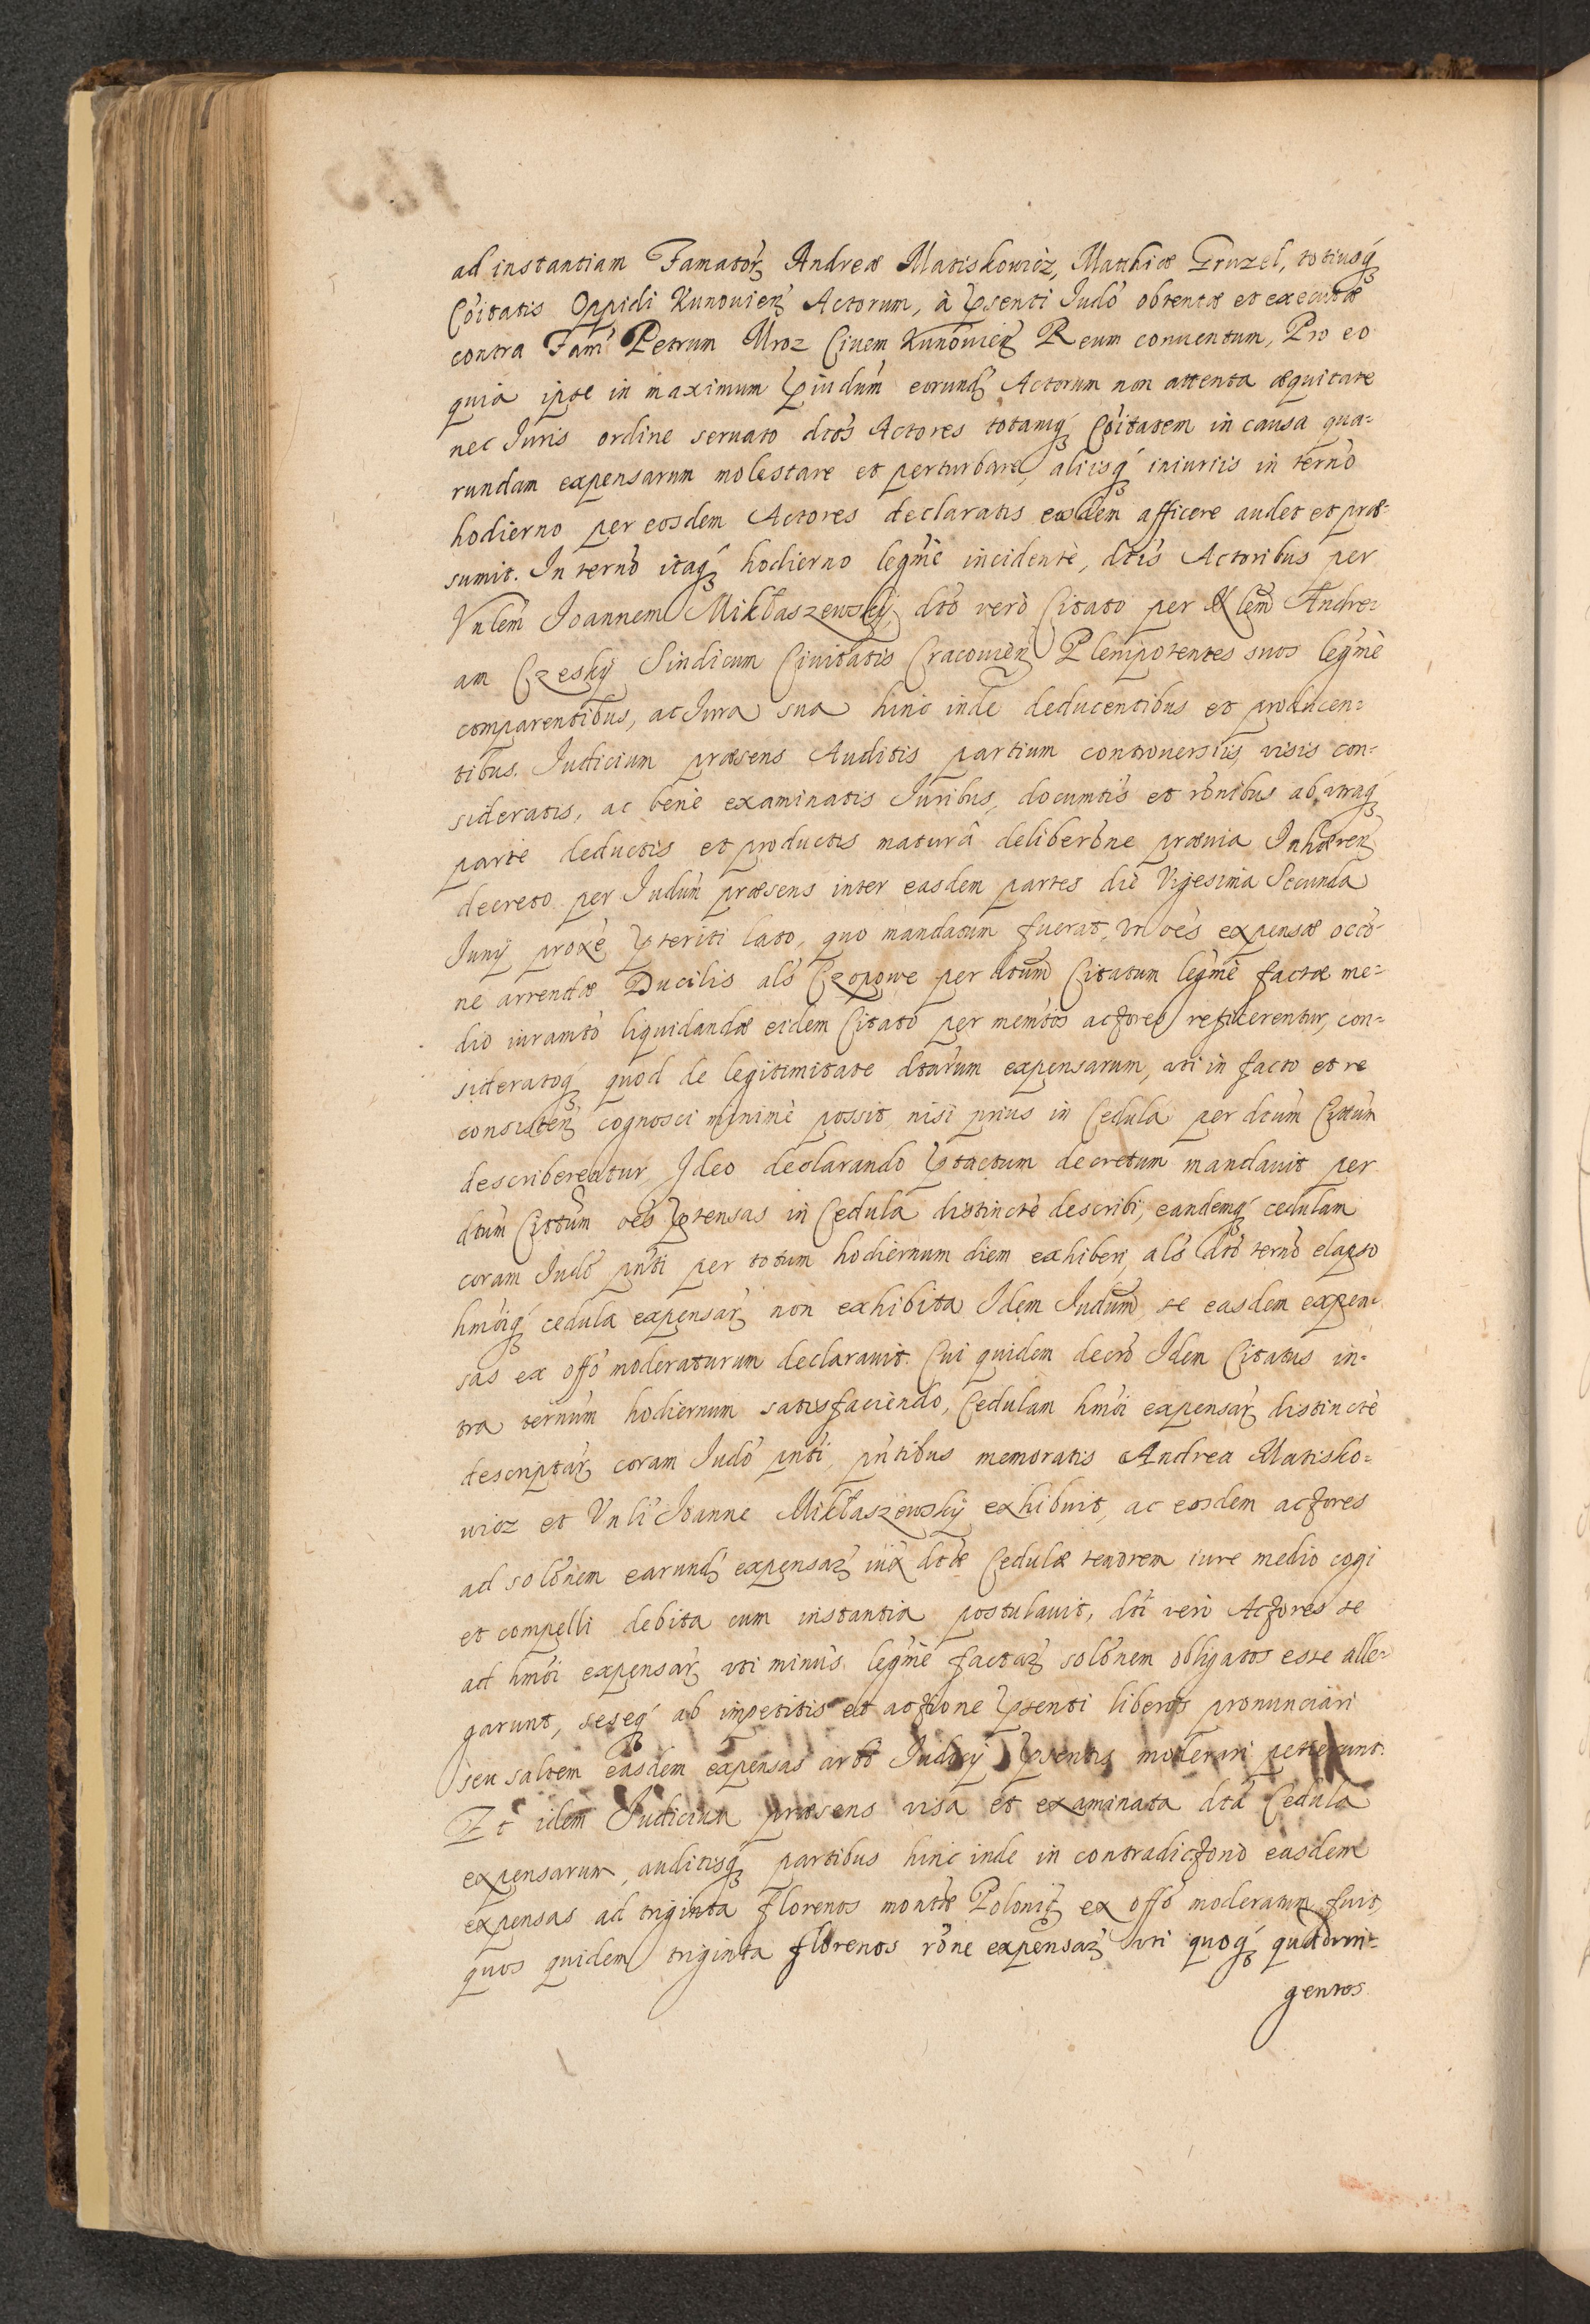 ad instantiam Famator̃ Andreæ Matiskowicz, Matthiæ Gruzel, totiusq́ꝫ
Cõitatis Oppidi Kunouieñ Actorum, à p̃senti Iudõ obtentæ et executæ
contra Fam̃ Petrum Mroz Ciuem Kunouieñ Reum conuentum, Pro eo
quia ipse in maximum p̃iudũm eorund̃ Actorum non attenta æquitate
nec Iuris ordine seruato dtõs Actores totamq́ꝫ Cõitatem in causa qua-
rundam expensarum molestare et perturbare, aliisq́ꝫ iniuriis in terno̊
hodierno per eosdem Actores declaratis eosdem afficere audet et præ-
sumit. In terno̊ itaq́ꝫ hodierno legm̃è incidente, dtĩs Actoribus per
Vnlem̃ Ioannem Mikłaszewskÿ, dtõ verò Citato per Nlem̃ Andre-
am Czeskÿ Sindicum Ciuitatis Cracouieñ Plenipotentes suos legm̃è
comparentibus, ac Iura sua hinc inde deducentibus et producen-
tibus. Iudicium præsens Auditis partium controuersiis, visis con-
sideratis, ac benè examinatis Iuribus, documtĩs et rõnibus ab vtraq́ꝫ
parte deductis et productis maturâ deliberõne præuia Inhæreñ
decreto per Iudũm præsens inter easdem partes die Vigesima Secunda
Iunÿ proxẽ p̃teriti lato, quo mandatum fuerat, vt oẽs expensæ occõ-
ne arrendæ Ducilis alš Czopowe per dtũm Citatum legm̃è factæ me-
dio iuramtõ liquidandæ eidem Citato per memtõs actores reficerentur, con-
sideratoq́ꝫ quod de legitimitate dtãrum expensarum, vti in facto et re
consisteñ cognosci minimè possit, nisi prius in Cedula per dtũm Cittũm
describerentur, Ideo declarando p̃tactum decretum mandauit per
dtũm Cittũm oẽs p̃tensas in Cedula distinctè describi, eandemq́ꝫ cedulam
coram Iudõ pñti per totum hodiernum diem exhiberi, alš dtõ terno̊ elapso
hmõiq́ꝫ cedula expensar̃ non exhibita Idem Iudũm, se easdem expen-
sas ex offõ moderaturum declarauit. Cui quidem decrõ Idem Citatus in-
tra ternũm hodiernum satisfaciendo, Cedulam hmõi expensar̃ distinctè
descriptar̃ coram Iudõ pñti, pñtibus memoratis Andrea Matisko-
wicz et Vnlĩ Ioanne Mikłaszewskÿ exhibuit, ac eosdem actores
ad solõnem earund̃ expensar̃ iux̃ dtæ̃ Cedulæ tenorem iure medio cogi
et compelli debita cum instantia postulauit, dtĩ verò Actores se
ad hmõi expensar̃ vti minus legm̃è factar̃ solõnem obligatos esse alle-
garunt, seseq́ꝫ ab impetitis et actione p̃senti liberos pronunciari
seu saltem easdem expensas arbõ Iudicÿ p̃sentis moderari petierunt.
Et idem Iudicium præsens visa et examinata dtã Cedula
expensarum, auditisq́ꝫ partibus hinc inde in contradictione easdem
expensas ad triginta florenos montæ̃ Poloniꝫ ex offõ moderatum fuit,
quos quidem triginta florenos rõne expensar̃ vti quoq́ꝫ quadrin-
gentos